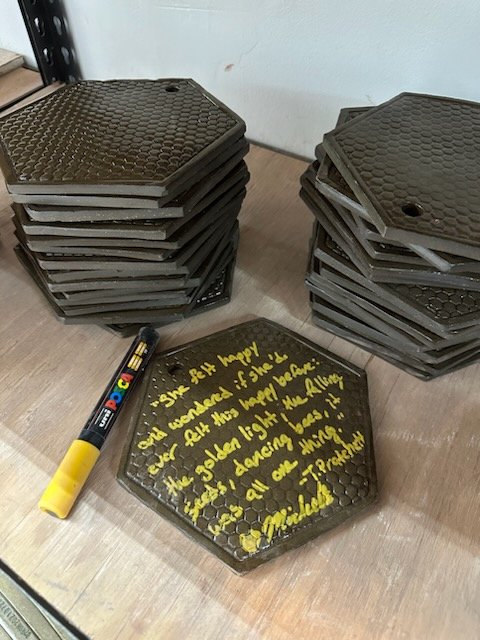 "She felt happy
and wondered if she'd
ever felt this happy before:
the golden light the falling
seeds, dancing bees, it
was all one thing"
-T. Pratchett
POSCA